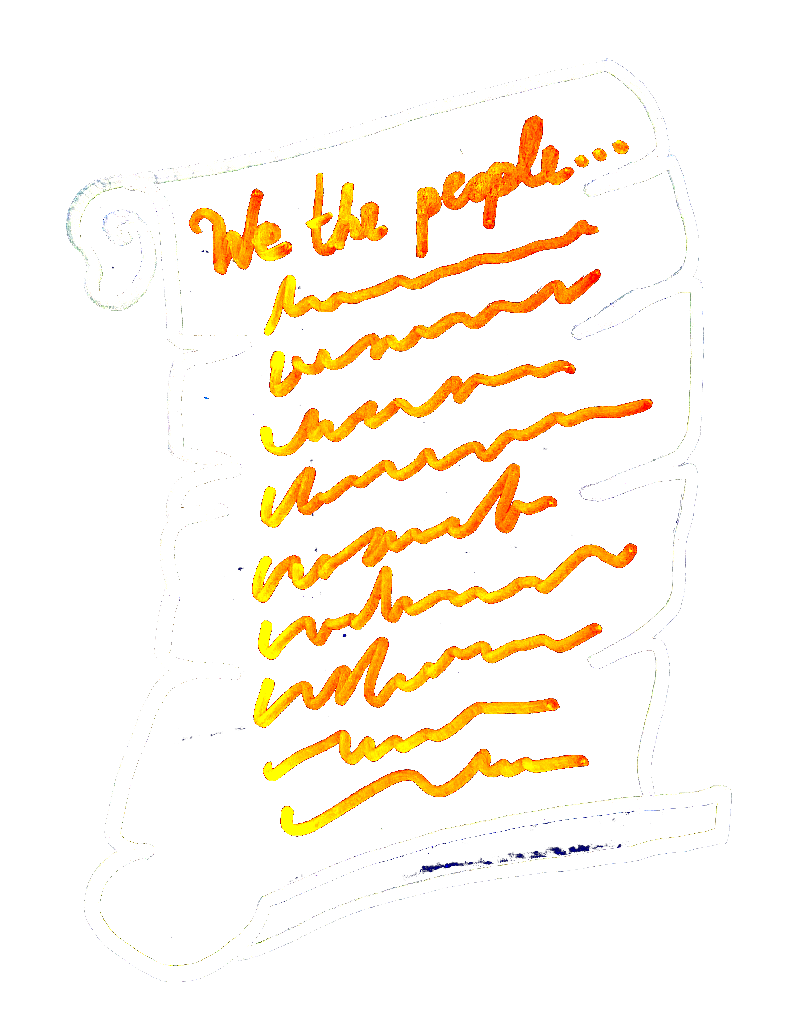 We the people...